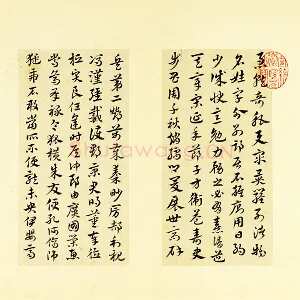 急就奇觚與衆異羅列諸物
名姓字分別部居不雜廁用日約
少誠快意勉力務之必有憙請道
其章宋延年鄭子方衛益壽史
步昌周千秋趙孺卿爰展世高辟
兵第二鄧萬歲秦眇房郝利親
馮漢彊戴護郡景君明董奉德
桓賢良任逢時侯仲郎由廣國榮惠
常烏承祿令狐橫朱交便孔何傷師
猛虎石敢當所不侵龍未央伊嬰齊